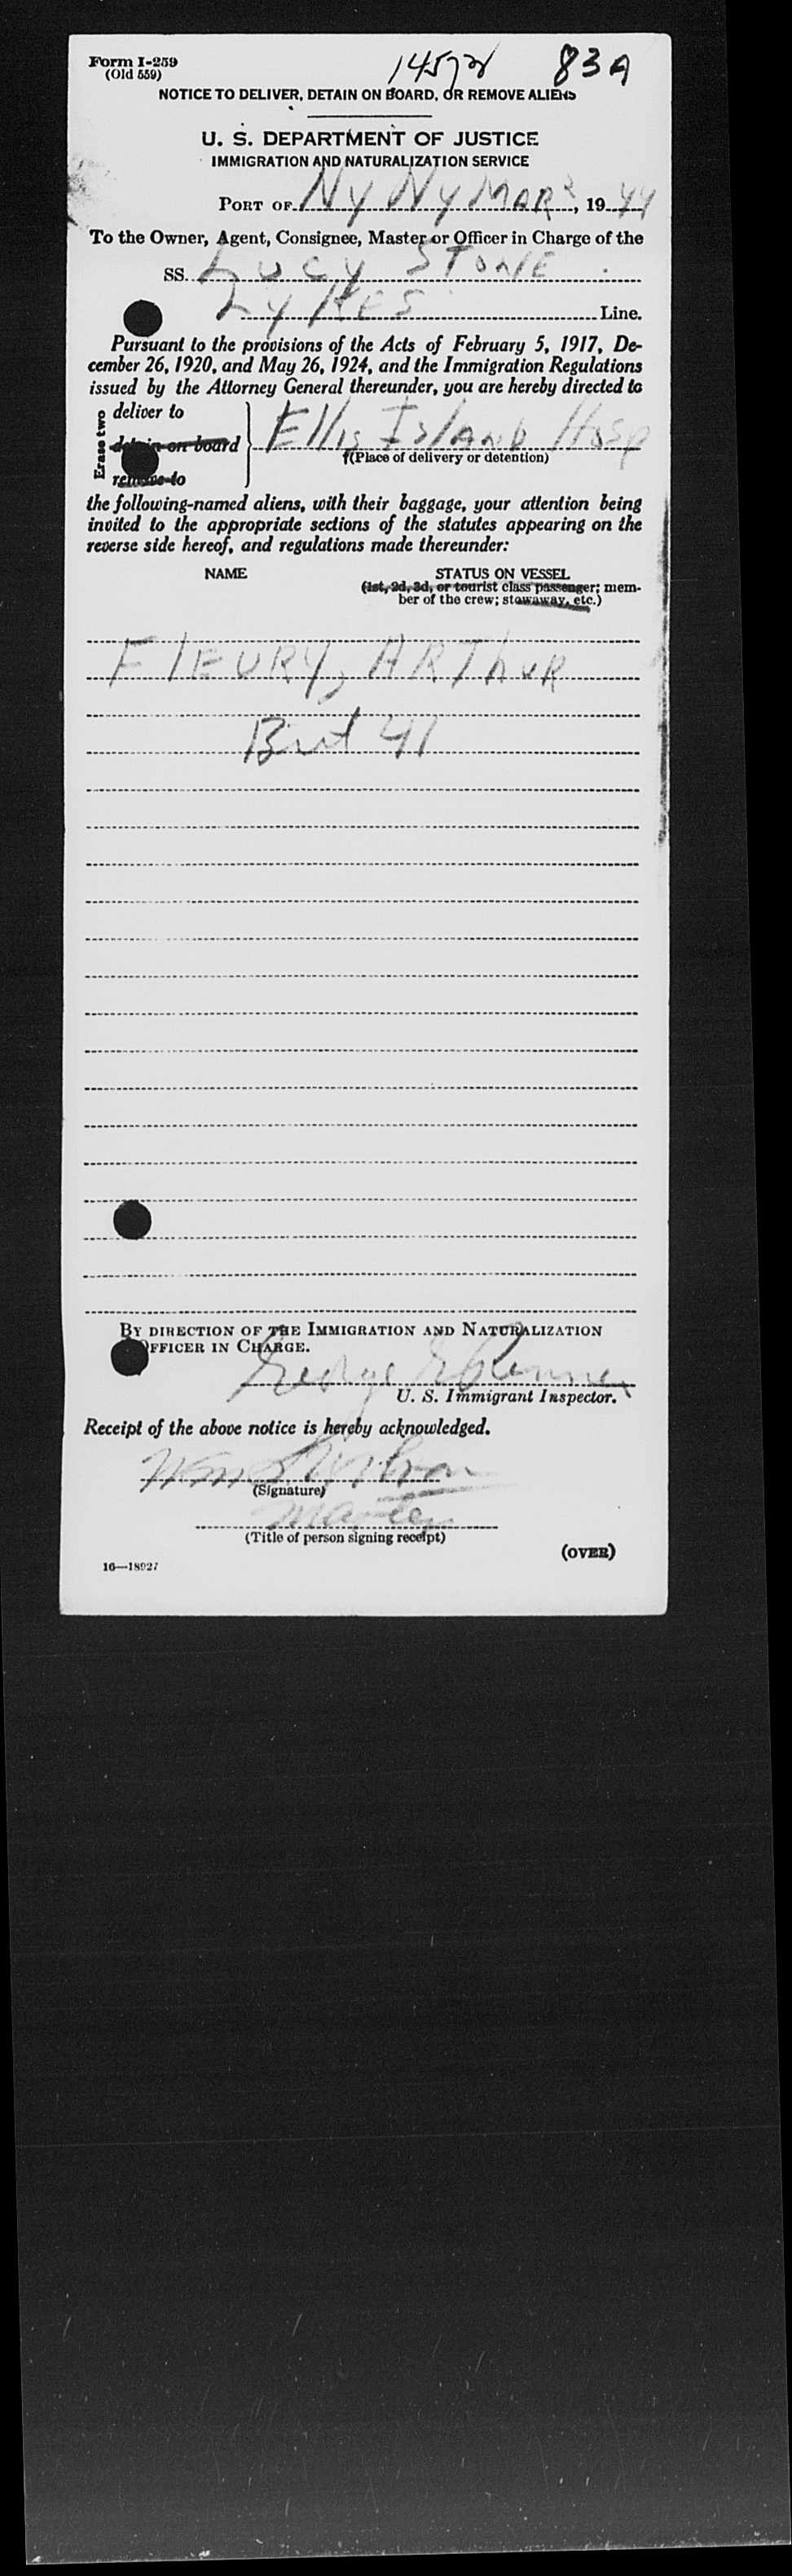 Form I-259
(Old 559)
83A
NOTICE TO DELIVER, DETAIN ON BOARD, OR REMOVE ALIENS
U. S. DEPARTMENT OF JUSTICE
IMMIGRATION AND NATURALIZATION SERVICE
PORT OF NY NY MAR 2, 1944
To the Owner, Agent, Consignee, Master or Officer in Charge of the
SS. LUCY STONE
LYKES Line.
Pursuant to the provisions of the Acts of February 5, 1917, De-
cember 26, 1920, and May 26, 1924, and the Immigration Regulations
issued by the Attorney General thereunder, you are hereby directed to
Erase two
deliver to
detain on board
remove to
Ellis Island Hosp
(Place of delivery or detention)
the following-named aliens, with their baggage, your attention being
invited to the appropriate sections of the statutes appearing on the
reverse side hereof, and regulations made thereunder:
NAME STATUS ON VESSEL
(1st, 2d, 3d, or tourist class passenger; mem-
ber of the crew; stowaway, etc.)
FLEURY, ARThUR
Brit 41
BY DIRECTION OF THE IMMIGRATION AND NATURALIZATION
OFFICER IN CHARGE.
George
U. S. Immigrant Inspector.
Receipt of the above notice is hereby acknowledged.
(Signature)
Master
(Title of person signing receipt)
(OVER)
16—18027